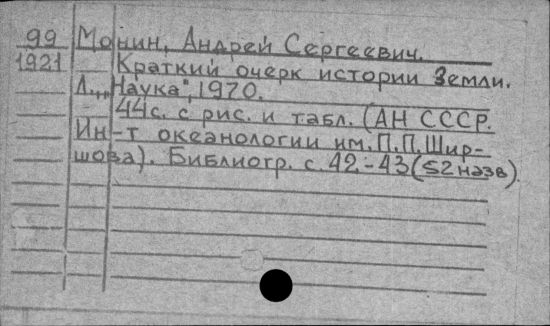 99 Монин, Андрей Сергеевич.
1921 Краткий очерк истории Земли.
Л., "Наука", 1970.
44 с. с рис. и табл. (АН СССР.
Ин-т океанологии им. П.П. Шир-
шова). Библиогр. с. 42-43 (52 назв).